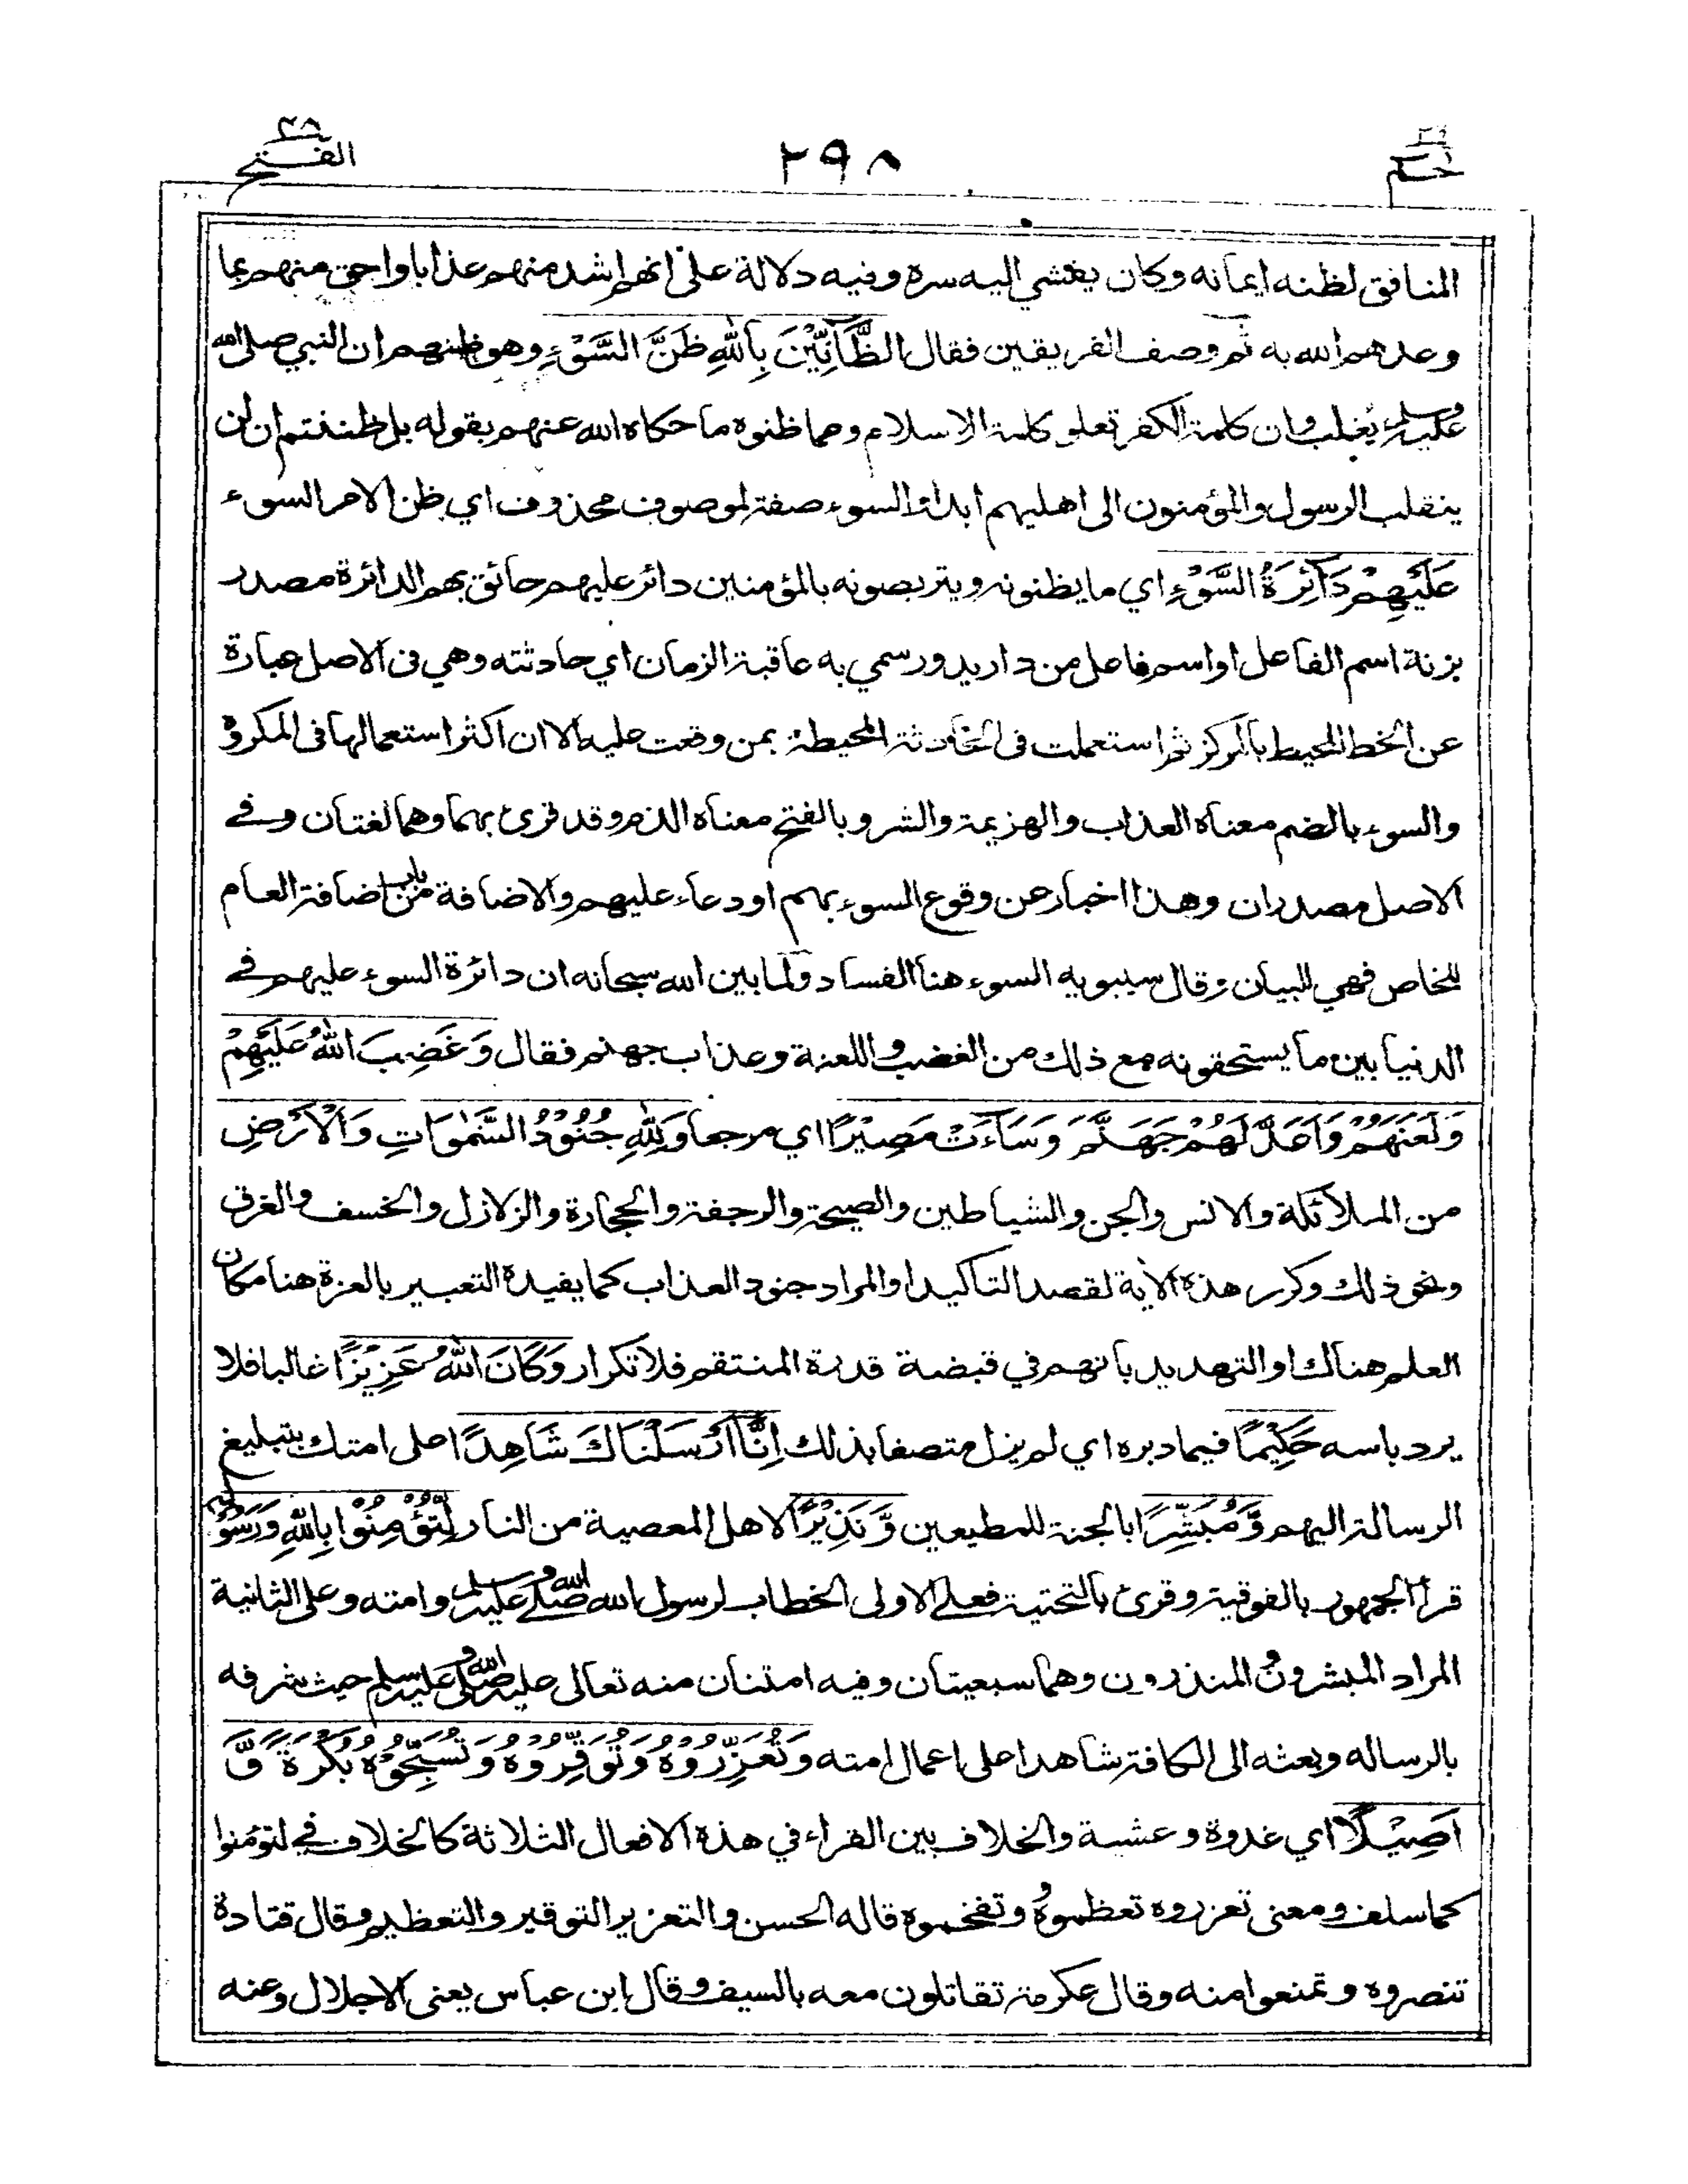 حم ٢٦
٢٩٨
الفتح ٤٨
المنافق لظنه ايمانه وكان يغشي اليه سره وفيه دلالة على انهم اشد منهم عذابا واحق منهم بما
وعدهم الله به ثم وصف الفريقين فقال الظَّآنِّيْنَ بِاللّٰهِ ظَنَّ السَّوْءِ وهو ظنهم ان النبي صلى الله
عليه وسلم يُغلب وان كلمة الكفر تعلو كلمة الاسلام ومما ظنوه ما حكاه الله عنهم بقوله بل ظننتم ان لن
ينقلب الرسول والمؤمنون الى اهليهم ابدا والسوء صفة لموصوف محذوف اي ظن الامر السوء
عَلَيْهِمْ دَآئِرَةُ السَّوْءِ اي ما يظنونه ويتربصونه بالمؤمنين دائر عليهم حائق بهم الدائرة مصدر
بزنة اسم الفاعل او اسم فاعل من دار يدور سمي به عاقبة الزمان اي حادثته وهي فى الاصل عبارة
عن الخط المحيط بالمركز ثم استعملت فى الحادثة المحيطة بمن وقعت عليه الا ان اكثر استعمالها فى المكروه
والسوء بالضم معناه العذاب والهزيمة والشر وبالفتح معناه الذم وقد قرئ بهما وهما لغتان وفي
الاصل مصدران وهذا اخبار عن وقوع السوء بهم او دعاء عليهم والاضافة من باب اضافة العام
للخاص فهي للبيان وقال سيبويه السوء هنا الفساد ولما بين الله سبحانه ان دائرة السوء عليهم في
الدنيا بين ما يستحقونه مع ذلك من الغضب واللعنة وعذاب جهنم فقال وَغَضِبَ اللّٰهُ عَلَيْهِمْ
وَلَعَنَهُمْ وَاَعَدَّ لَهُمْ جَهَنَّمَ وَسَآءَتْ مَصِيْرًا اي مرجعا وَلِلّٰهِ جُنُوْدُ السَّمٰوَاتِ وَالْاَرْضِ
من الملائكة والانس والجن والشياطين والصيحة والرجفة والحجارة والزلازل والخسف والغرق
ونحو ذلك وكرر هذه الاية لقصد التاكيد او المراد جنود العذاب كما يفيدة التعبير بالعزة هنا مكان
العلم هناك او التهديد بانهم في قبضة قدرة المنتقم فلا تكرار وَكَانَ اللّٰهُ عَزِيْزًا غالبا فلا
يرد باسه حَكِيْمًا فيما دبره اي لم يزل متصفا بذلك اِنَّآ اَرْسَلْنَاكَ شَاهِدًا على امتك بتبليغ
الرسالة اليهم وَّمُبَشِّرًا بالجنة للمطيعين وَّنَذِيْرًا لاهل المعصية من النار لِّتُؤْمِنُوْا بِاللّٰهِ وَرَسُوْلِهٖ
قرأ الجمهور بالفوقية وقرئ بالتحتية فعلى الاولى الخطاب لرسول الله صلى الله عليه وسلم وامته وعلى الثانية
المراد المبشرون والمنذرون وهما سبعيتان وفيه امتنان منه تعالى عليه صلى الله عليه وسلم حيث شرفه
بالرساله وبعثه الى الكافة شاهدا على اعمال امته وَتُعَزِّرُوْهُ وَتُوَقِّرُوْهُ وَتُسَبِّحُوْهُ بُكْرَةً وَّ
اَصِيْلًا اي غدوة وعشية والخلاف بين القراء في هذه الافعال الثلاثة كالخلاف في لتؤمنوا
كما سلف ومعنى تعزروه تعظموه وتفخموه قاله الحسن والتعزير التوقير والتعظيم وقال قتادة
تنصروه وتمنعوا منه وقال عكرمة تقاتلون معه بالسيف وقال ابن عباس يعنى الاجلال وعنه